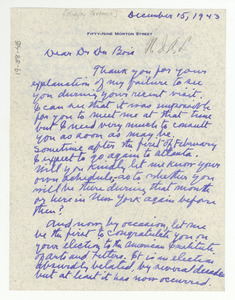 December 15, 1943
FIFTY-NINE MORTON STREET
Dear Dr Du Bois
Thank you for your
explanation of my failure to see
you during your recent visit.
I can see that it was impossible
for you to meet me at that time
but I need very much to consult
you as soon as may be.
Sometime after the first of February
I expect to go again to Atlanta.
Will you kindly let me know your
own schedule, as to whether you
will be there during that month
or here in New York again before
then?
And now by occasion, let me
be the first to congratulate you on
your election to the American Institute
of Arts and Letters. It is an election
absurdly belated, by several decades
but at least it has now occurred.